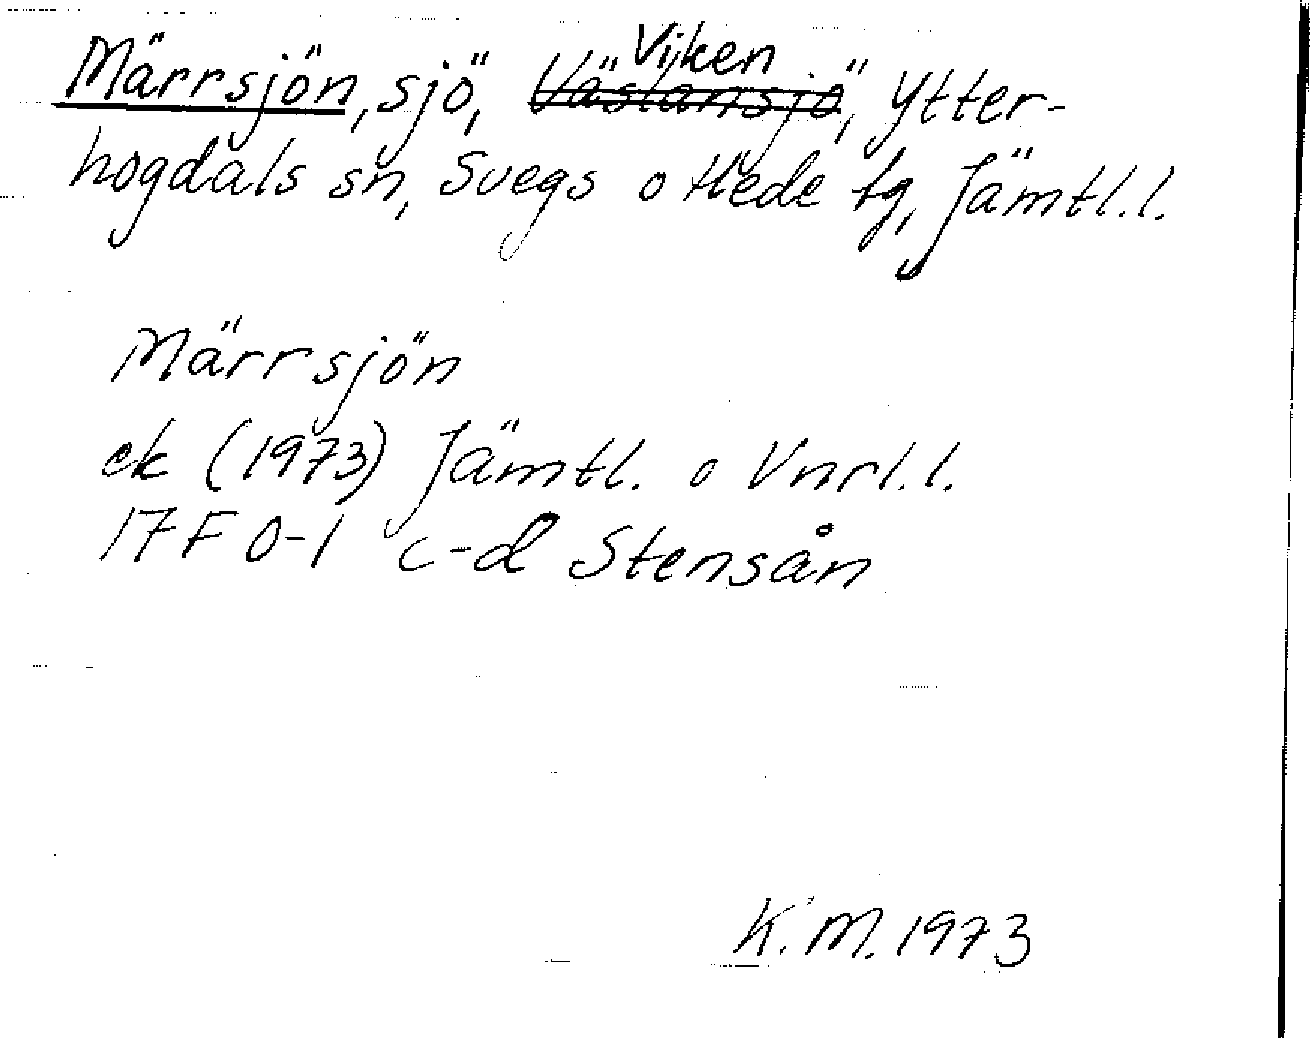 Märrsjön, sjö, Västansjö, Viken Ytter-
hogdals sn, Svegs o Hede tg, Jämtl.l.
Märrsjön
ek (1973) Jämtl. o Vnrl.l.
17F 0-1 c-d Stensån
K.M. 1973